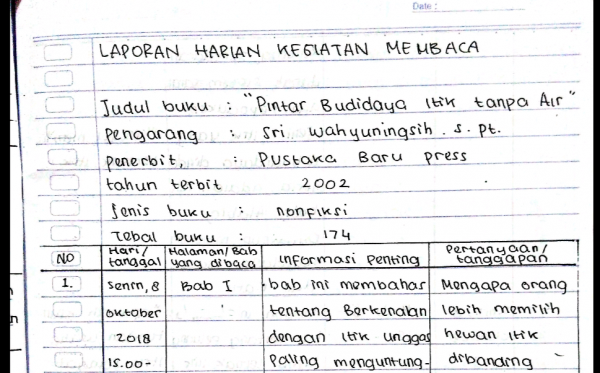 Date :
LAPORAN HARIAN KEGIATAN MEMBACA
Judul buku : "Pintar Budidaya Itik tanpa Air"
Pengarang : Sri. Wahyuningsih. S. Pt.
Penerbit, : Pustaka Baru press
tahun terbit 2002
Jenis buku : nonfiksi
Tebal buku : 174
NO Hari/ tanggal Halaman/Bab yang dibaca informasi penting Pertanyaan/ tanggapan
1. Senin, 8 Bab I bab ini membahas Mengapa orang
oktober tentang Berkenalan lebih memilih
2018 dengan itik unggas hewan itik
15.00- paling menguntung- dibanding